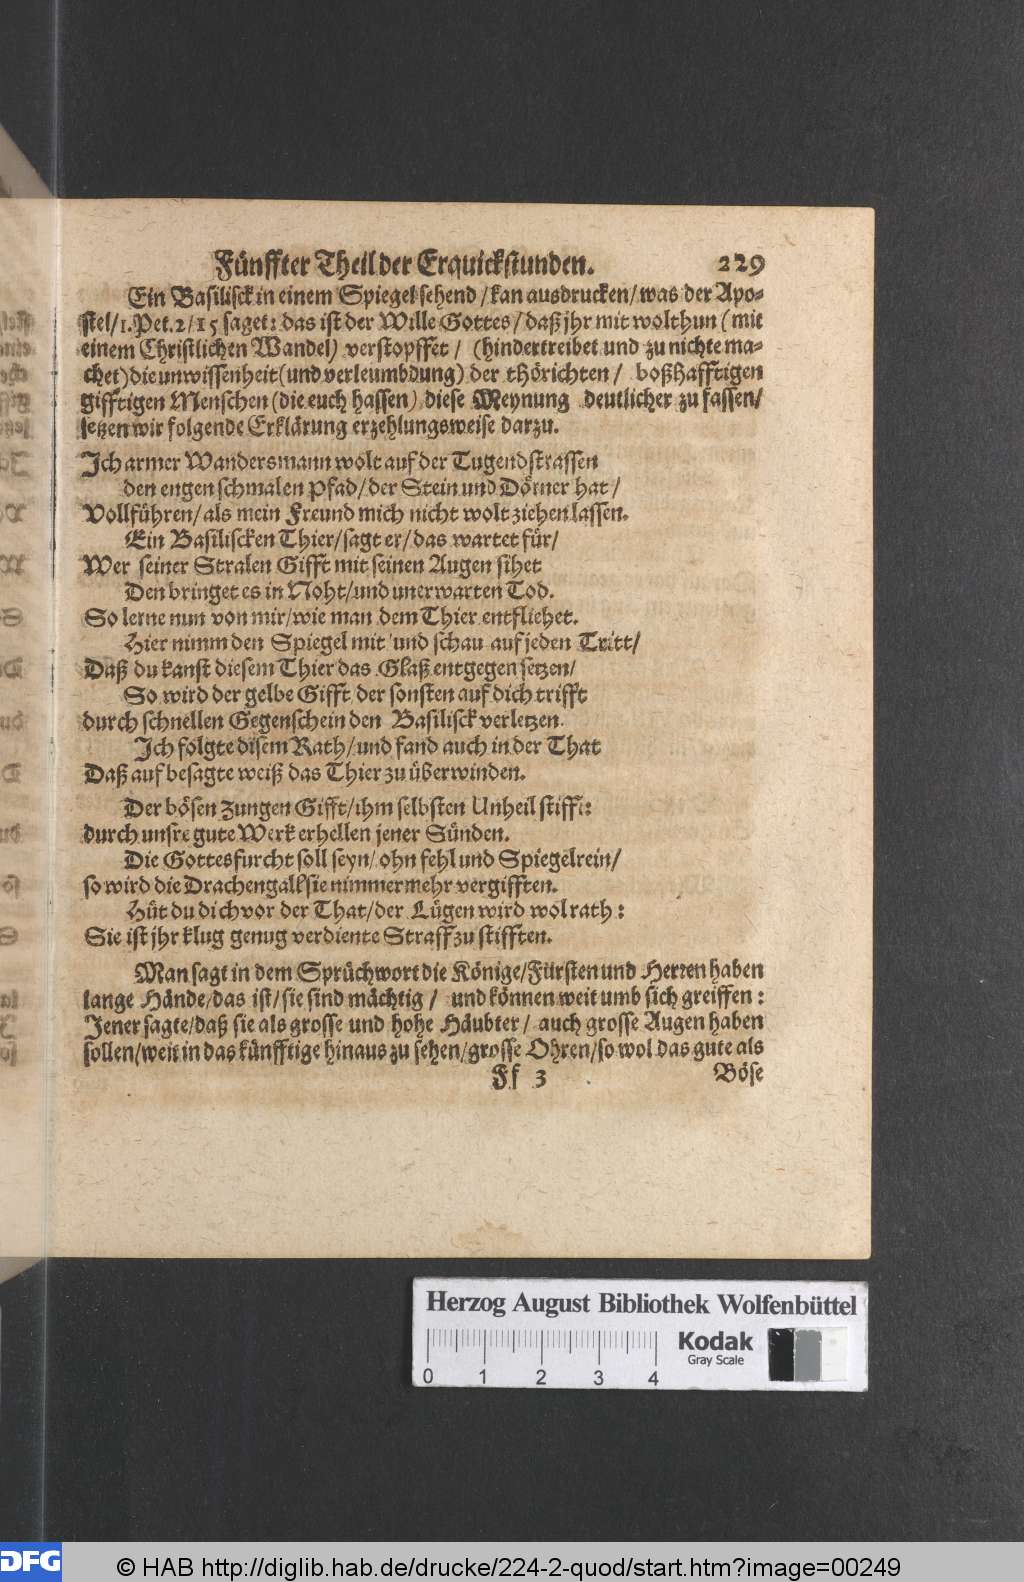 Fünffter Theil der Erquickstunden. 229
Ein Basilisck in einem Spiegel sehend / kan ausdrucken / was der Apo-
stel / 1. Pet. 2 / 15 saget: das ist der Wille Gottes / daß jhr mit wolthun (mit
einem Christlichen Wandel) verstopffet / (hindertreibet und zu nichte ma-
chet) die unwissenheit (und verleumbdung) der thörichten / boßhafftigen
gifftigen Menschen (die euch hassen) diese Meynung deutlicher zu fassen /
setzen wir folgende Erklärung erzehlungsweise darzu.
Ich armer Wandersmann wolt auf der Tugendstrassen
den engen schmalen Pfad / der Stein und Dörner hat /
Vollführen / als mein Freund mich nicht wolt ziehen lassen.
Ein Basiliscken Thier / sagt er / das wartet für /
Wer seiner Stralen Gifft mit seinen Augen sihet
Den bringet es in Noht / und unerwarten Tod.
So lerne nun von mir / wie man dem Thier entfliehet.
Hier nimm den Spiegel mit und schau auf jeden Tritt /
Daß du kanst diesem Thier das Glaß entgegen setzen /
So wird der gelbe Gifft der sonsten auf dich trifft
durch schnellen Gegenschein den Basilisck verletzen.
Ich folgte disem Rath / und fand auch in der That
Daß auf besagte weiß das Thier zu überwinden.
Der bösen Zungen Gifft / ihm selbsten Unheil stifft:
durch unsre gute Werk erhellen jener Sünden.
Die Gottesfurcht soll seyn / ohn fehl und Spiegelrein /
so wird die Drachengall sie nimmermehr vergifften.
Hüt du dich vor der That / der Lügen wird wol rath:
Sie ist jhr klug genug verdiente Straff zu stifften.
Man sagt in dem Sprüchwort die Könige / Fürsten und Herren haben
lange Hände / das ist / sie sind mächtig / und können weit umb sich greiffen:
Jener sagte / daß sie als grosse und hohe Häubter / auch grosse Augen haben
sollen / weit in das künfftige hinaus zu sehen / grosse Ohren / so wol das gute als
Ff 3 Böse
Herzog August Bibliothek Wolfenbüttel
Kodak
Gray Scale
0 1 2 3 4
DFG
© HAB http://diglib.hab.de/drucke/224-2-quod/start.htm?image=00249